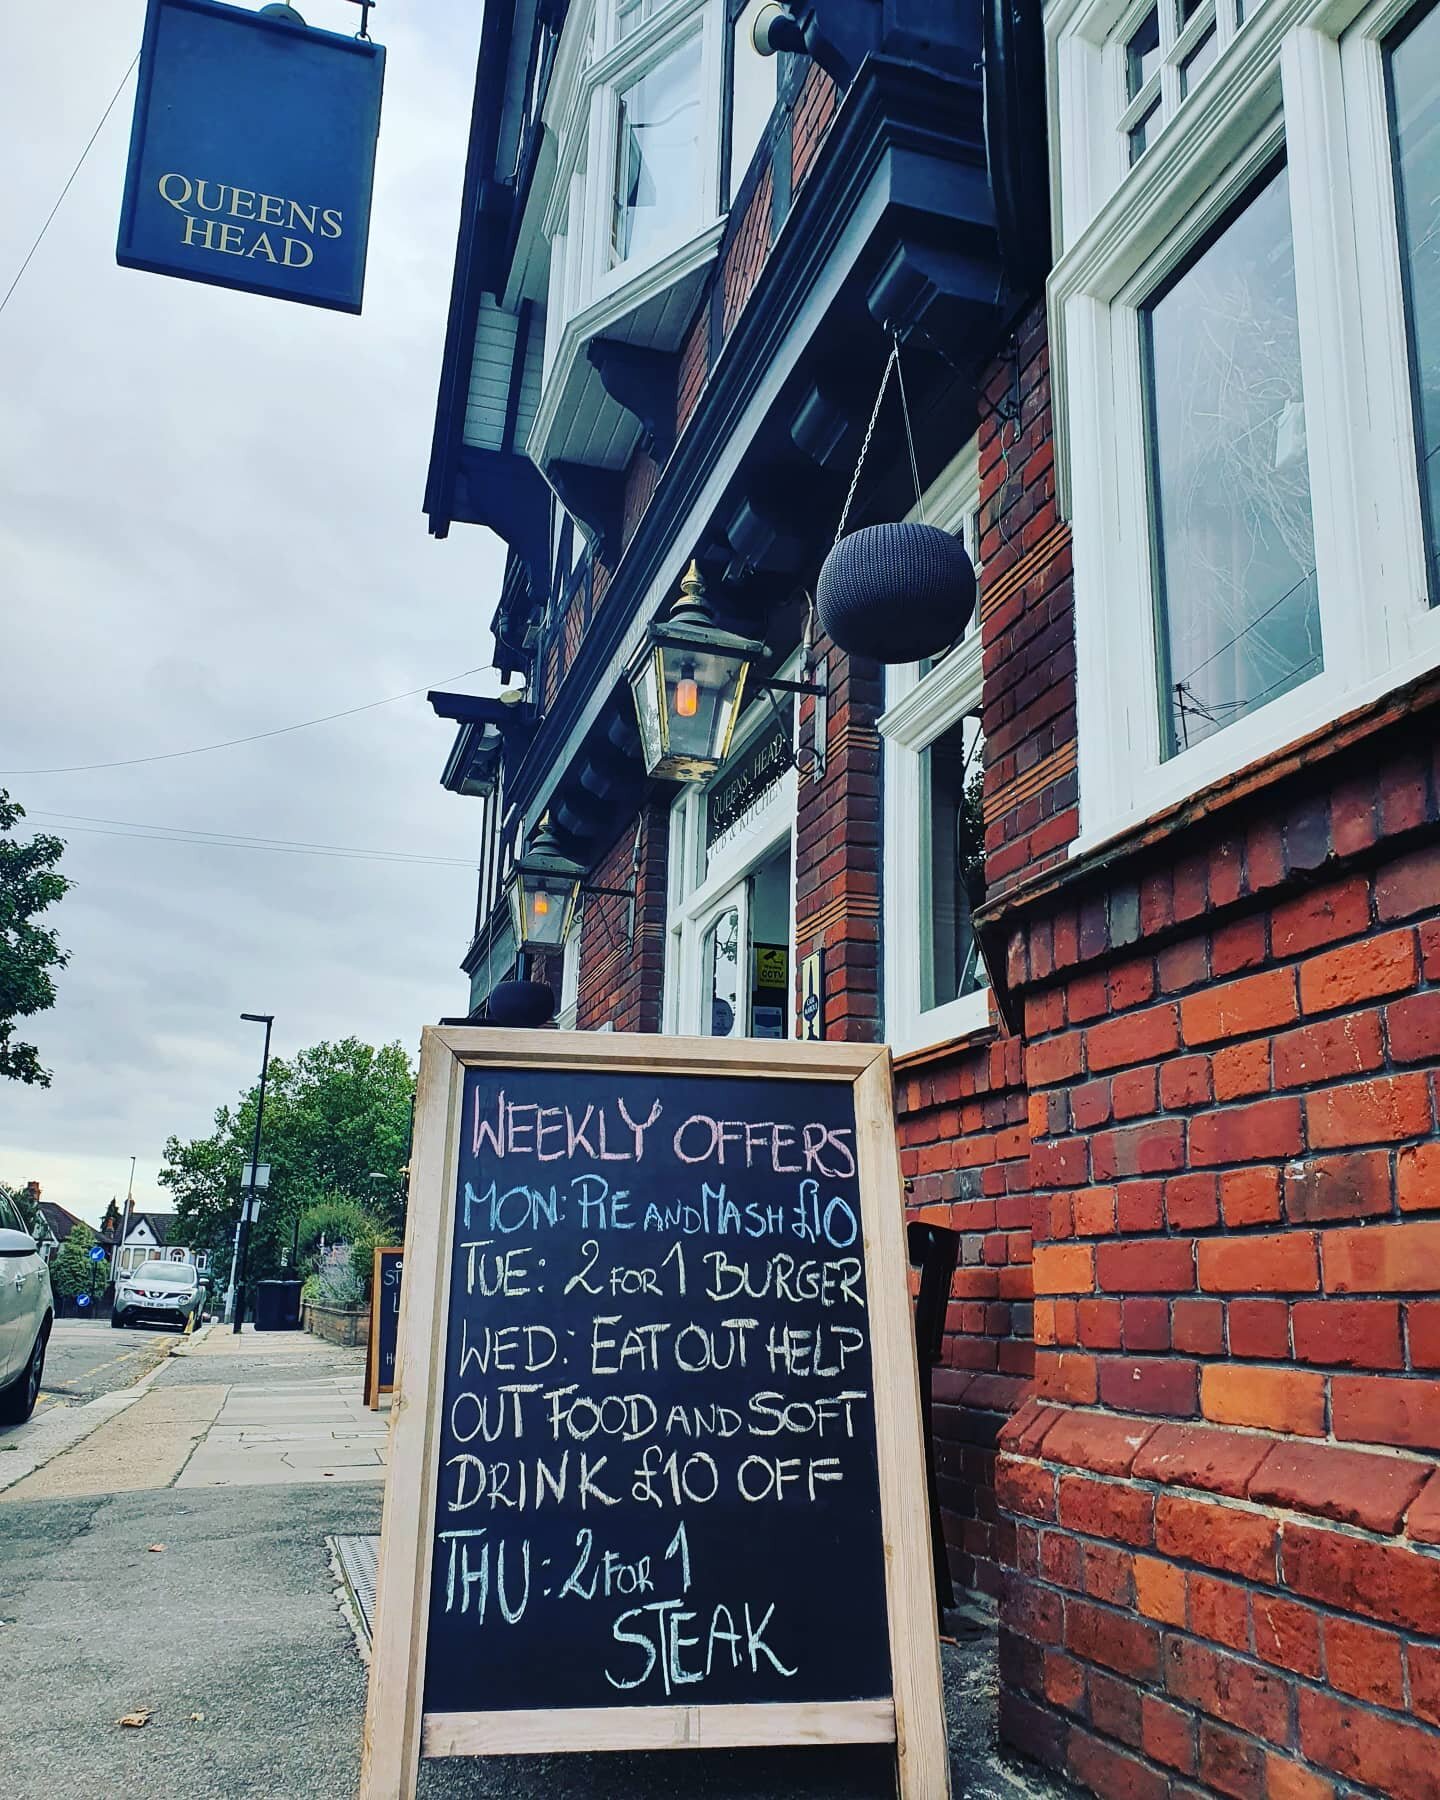 QUEENS
HEAD
QUEENS HEAD
PUB & KITCHEN
CCTV
WEEKLY OFFERS
MON: PIE AND MASH £10
TUE: 2 FOR 1 BURGER
WED: EAT OUT HELP
OUT FOOD AND SOFT
DRINK £10 OFF
THU: 2 FOR 1
STEAK